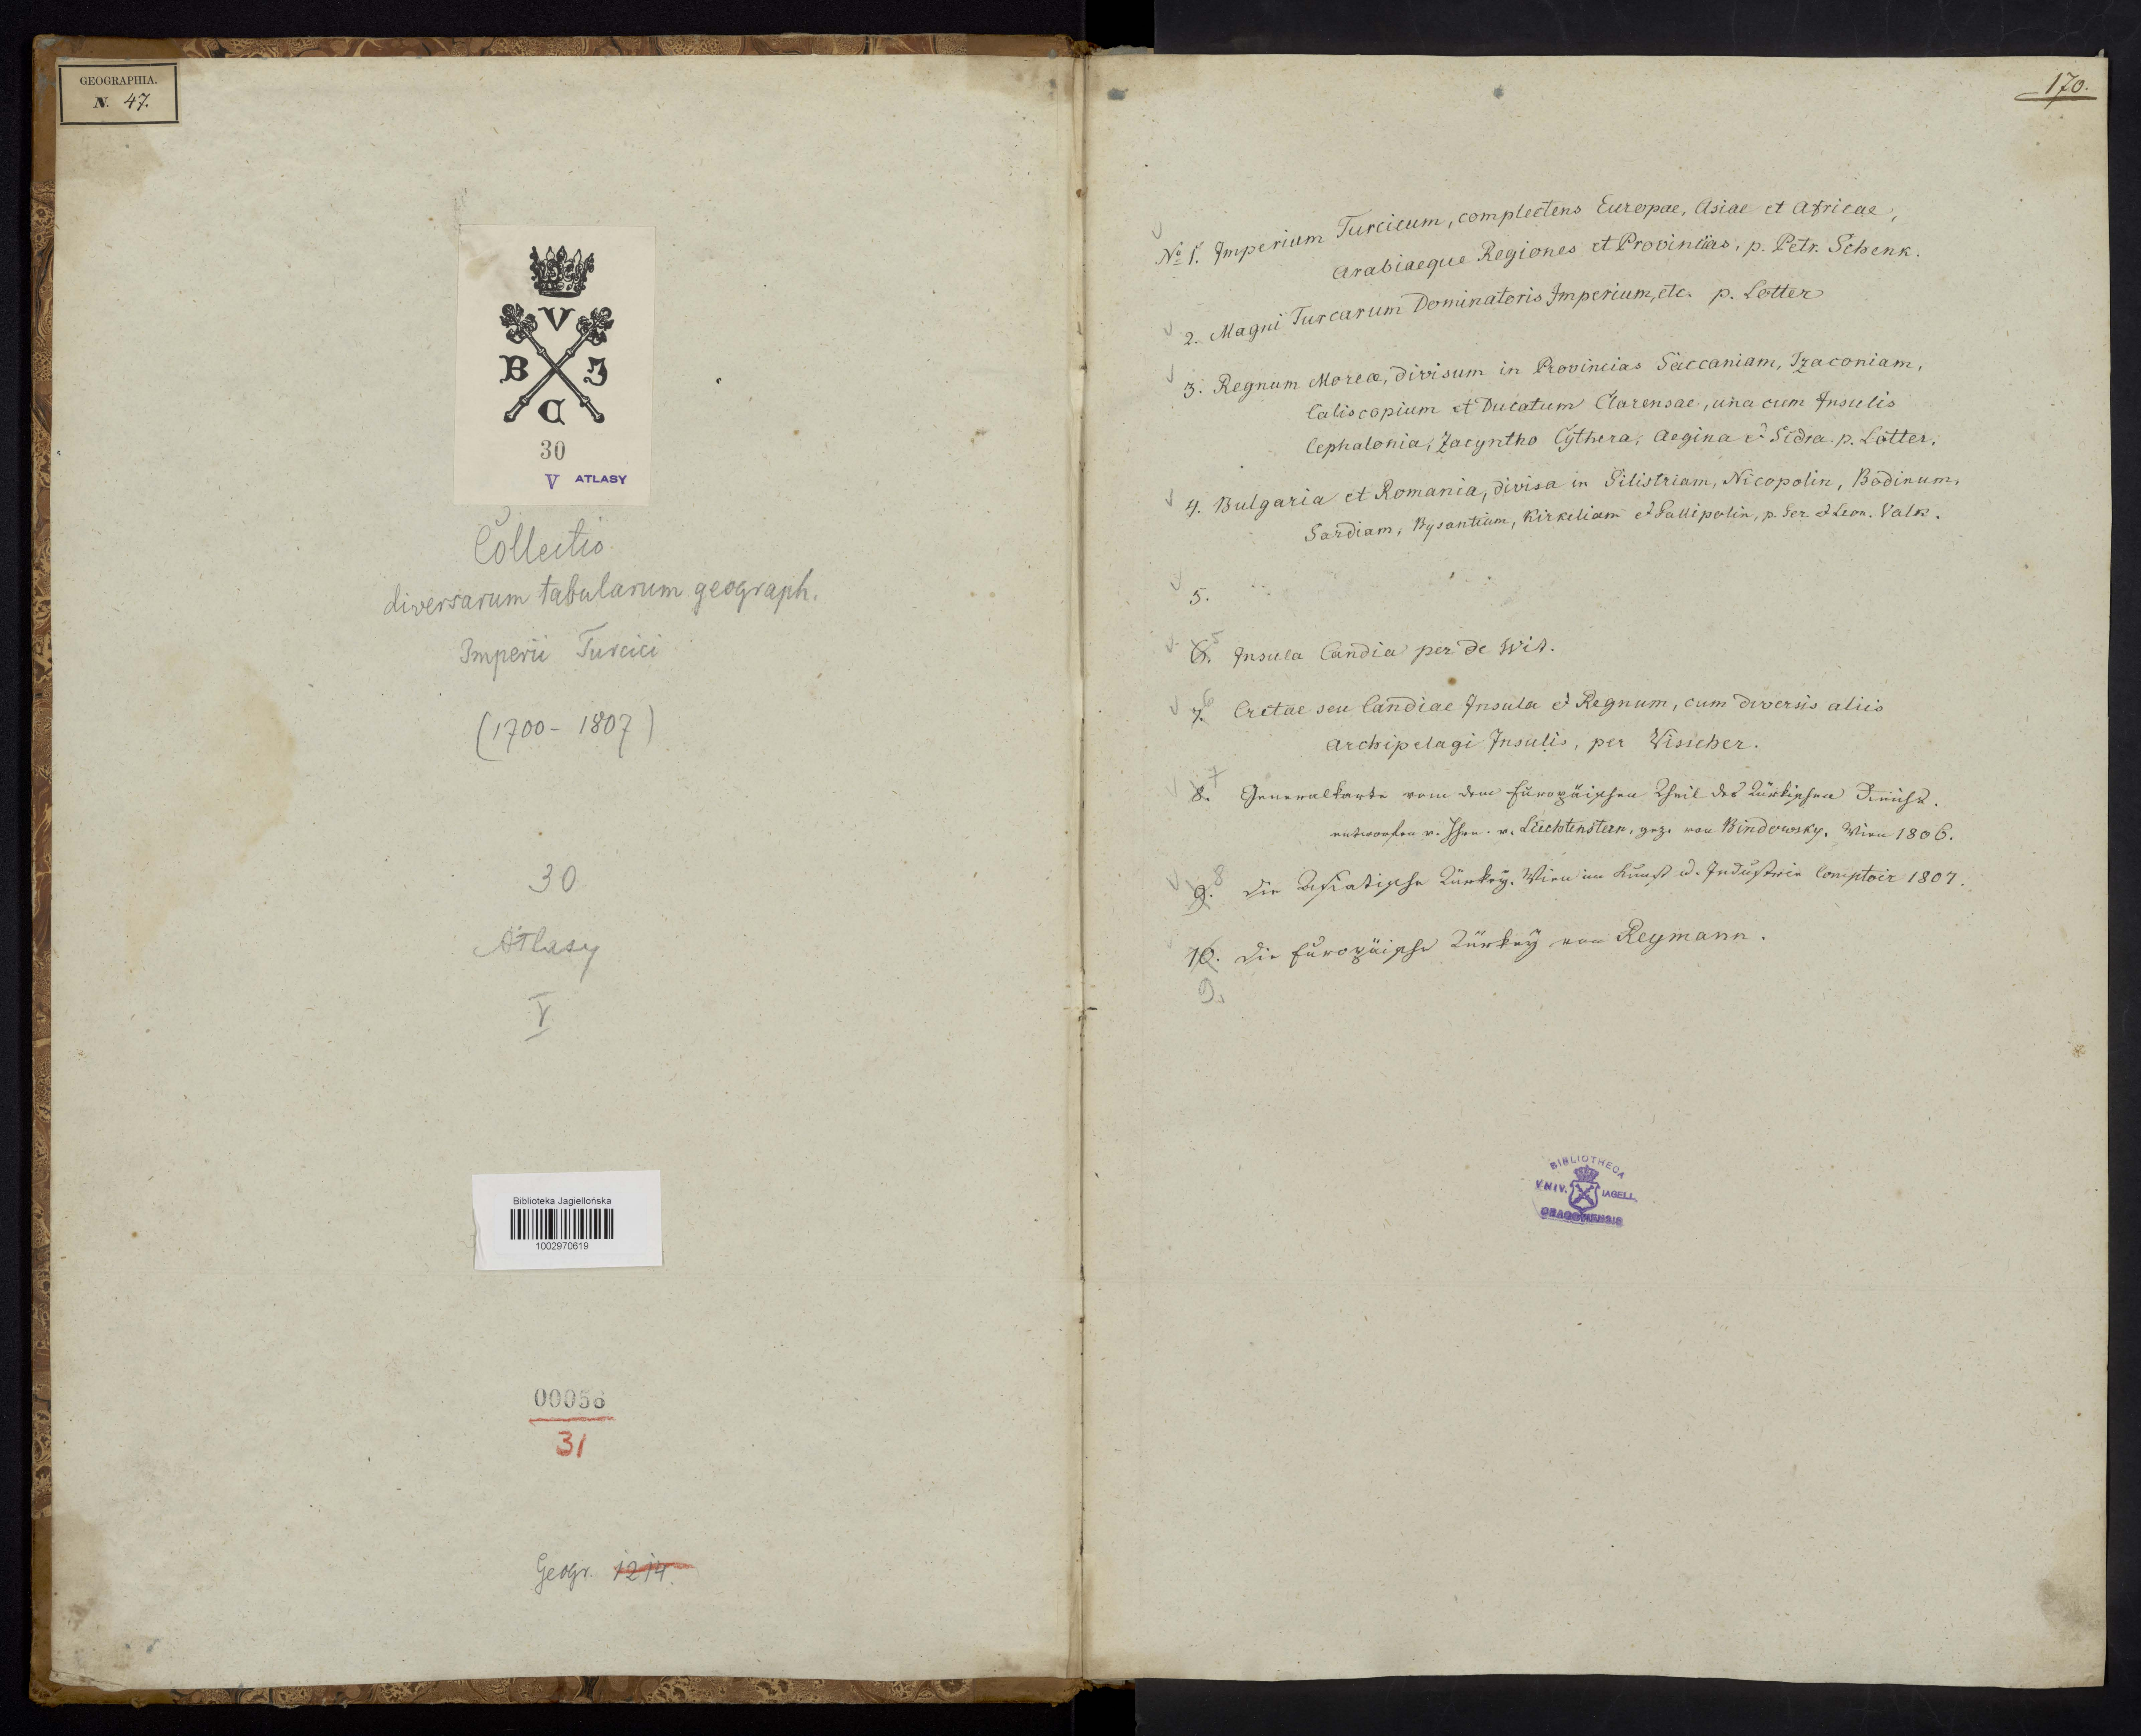 GEOGRAPHIA.
N. 47.
V
B J
C
30
V ATLASY
Collectio
diversarum tabularum geograph.
Imperii Turcici
(1700-1807)
30
Atlasy
V
Biblioteka Jagiellońska
1002970619
00056
31
Geogr. 1214.
170.
No 1. Imperium Turcicum, complectens Europae, Asiae et Africae,
Arabiaeque Regiones et Provincias, p. Petr. Schenk.
2. Magni Turcarum Dominatoris Imperium, etc. p. Lotter
3. Regnum Moreæ, divisum in Provincias Saccaniam, Tzaconiam,
Caliscopium et Ducatum Clarensae, una cum Insulis
Cephalonia, Zacyntho Cythera, Aegina et Sidra. p. Lotter.
4. Bulgaria et Romania, divisa in Silistriam, Nicopolin, Bodinum,
Sardiam, Bysantium, Kirkeliam et Gallipolin, p. Ger. et Leon. Valk.
5.
6. 5 Insula Candia per de Wit.
7. 6 Cretae seu Candiae Insula et Regnum, cum diversis aliis
Archipelagi Insulis, per Visscher.
8. 7 Generalkarte vom dem Europäischen Theil des Türkischen Reichs.
entworfen v. Jhrn. v. Liechtenstern, gez. von Bindowsky. Wien 1806.
9. 8 Die Asiatische Türkey. Wien im Kunst u. Industrie Comptoir 1807.
10. Die Europäische Türkey von Reymann.
9.
BIBLIOTHECA
VNIV. IAGELL.
CRACOVIENSIS